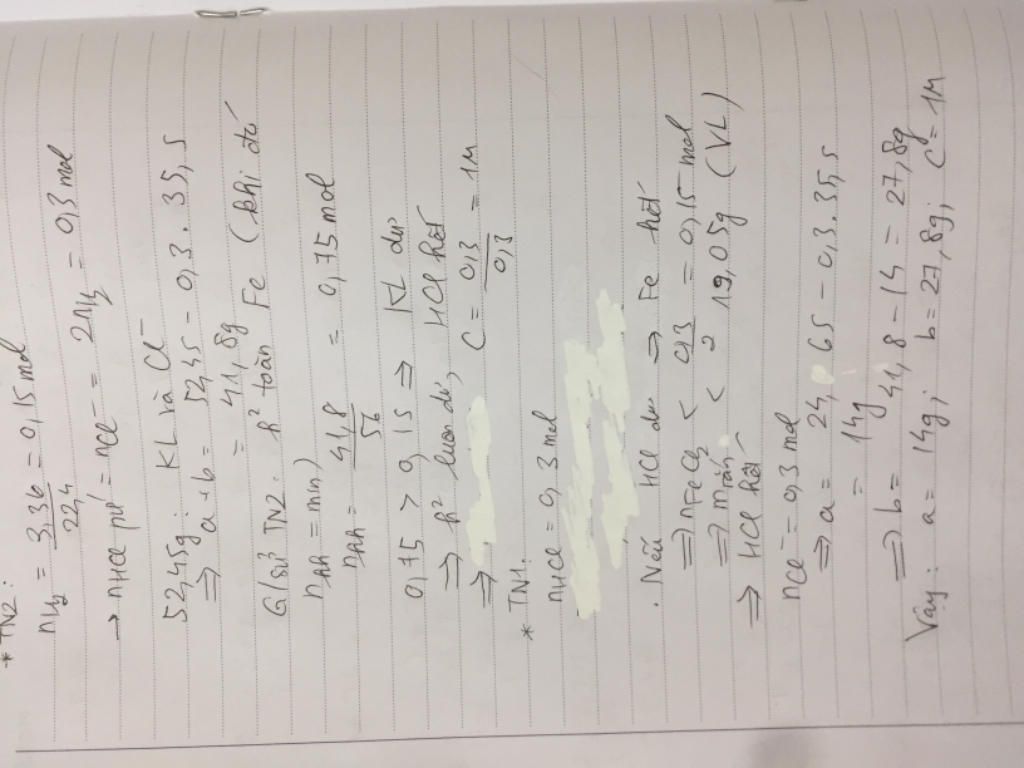 * TN2:
nH2 = 3,36/22,4 = 0,15 mol
→ nHCl pứ = nCl⁻ = 2nH2 = 0,3 mol
52,45g: KL và Cl⁻
⇒ a + b = 52,45 - 0,3 . 35,5
= 41,8g
G/sử TN2: h² toàn Fe (khi đó
nhh = min)
nhh = 41,8/56 = 0,75 mol
0,75 > 0,15 ⇒ KL dư
⇒ h² luôn dư, HCl hết
⇒ C = 0,3/0,3 = 1M
* TN1:
nHCl = 0,3 mol
. Nếu HCl dư ⇒ Fe hết
⇒ nFeCl2 < 0,3/2 = 0,15 mol
⇒ mrắn < 19,05g (VL)
⇒ HCl hết
nCl⁻ = 0,3 mol
⇒ a = 24,65 - 0,3.35,5
= 14g
⇒ b = 41,8 - 14 = 27,8g
Vậy: a = 14g; b = 27,8g; C = 1M